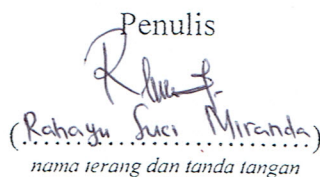 Penulis
(Rahayu Suci Miranda)
nama terang dan tanda tangan